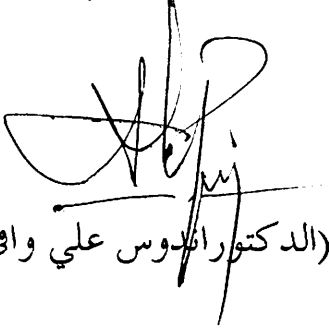 (الدكتوراندوس علي وافي